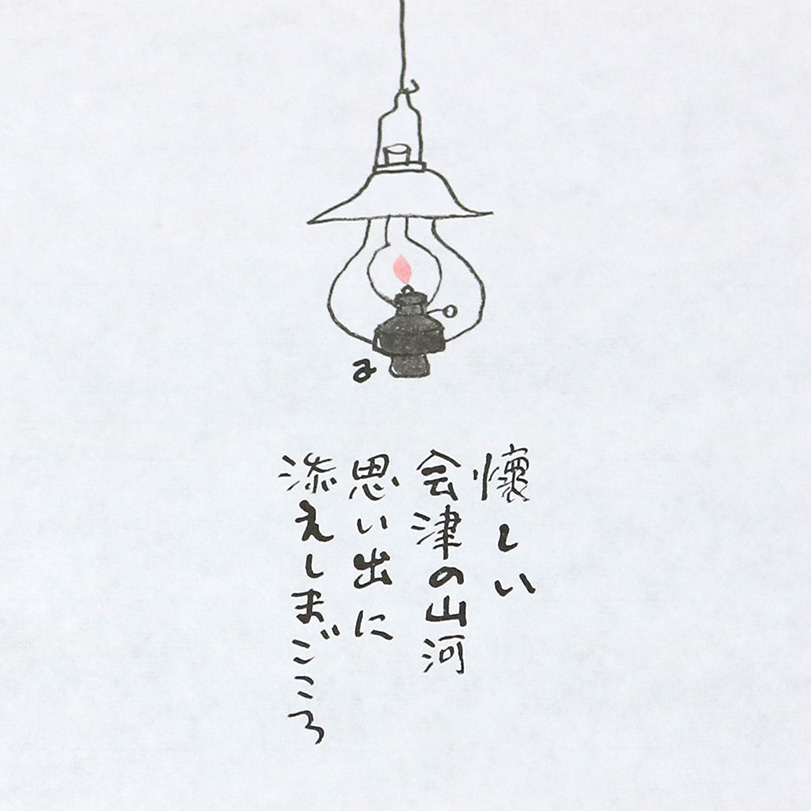 懐しい
会津の山河
思い出に
添えしまごころ